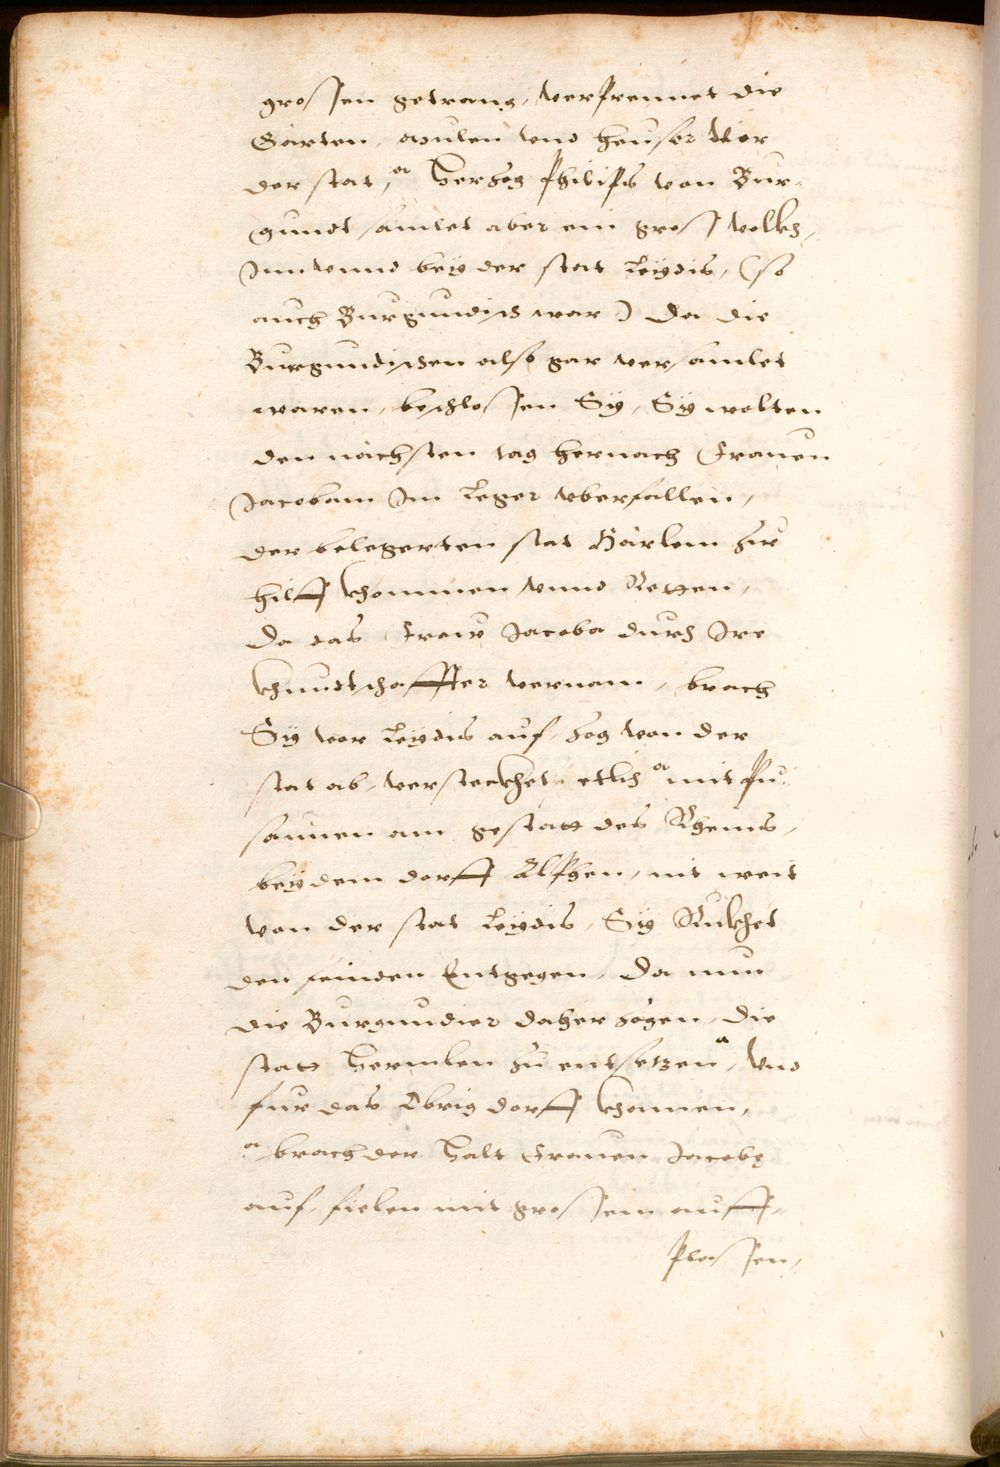 grossen getrang, verprennet die
Gärten, Mulen vnd heuser vor
der stat, a Hertzog Philips von Bur-
gundt samlet aber ein gross volkh,
Inn vnnd bey der stat Leydis, (so
auch Burgundisch war) Da die
Burgundischen also gar versamlet
waren, beschlossen Sy, Sy wolten
den nächsten tag hernach Frauen
Jacobam Im Leger vberfallen,
der belegerten stat Härlem zu
hilff khommen vnnd Retten,
Da das Fraw Jacoba durch Ire
khundtschaffter vernam, brach
Sy vor Leydis auf, zog von der
stat ab, versteckhet etlich a mit Pu-
saunen am gestatt des Rheins,
bey dem dorff Alphen, nit weit
von der stat Leydis, Sy Rukhet
den feinden Entgegen, Da nun
die Burgundier daher zogen, die
statt Hermlen zu entsetzen a, vnd
fur das Obrig dorff khamen,
a brach der Halt Frauen Jacobe
auf, fielen mit grossem auff-
plassen,